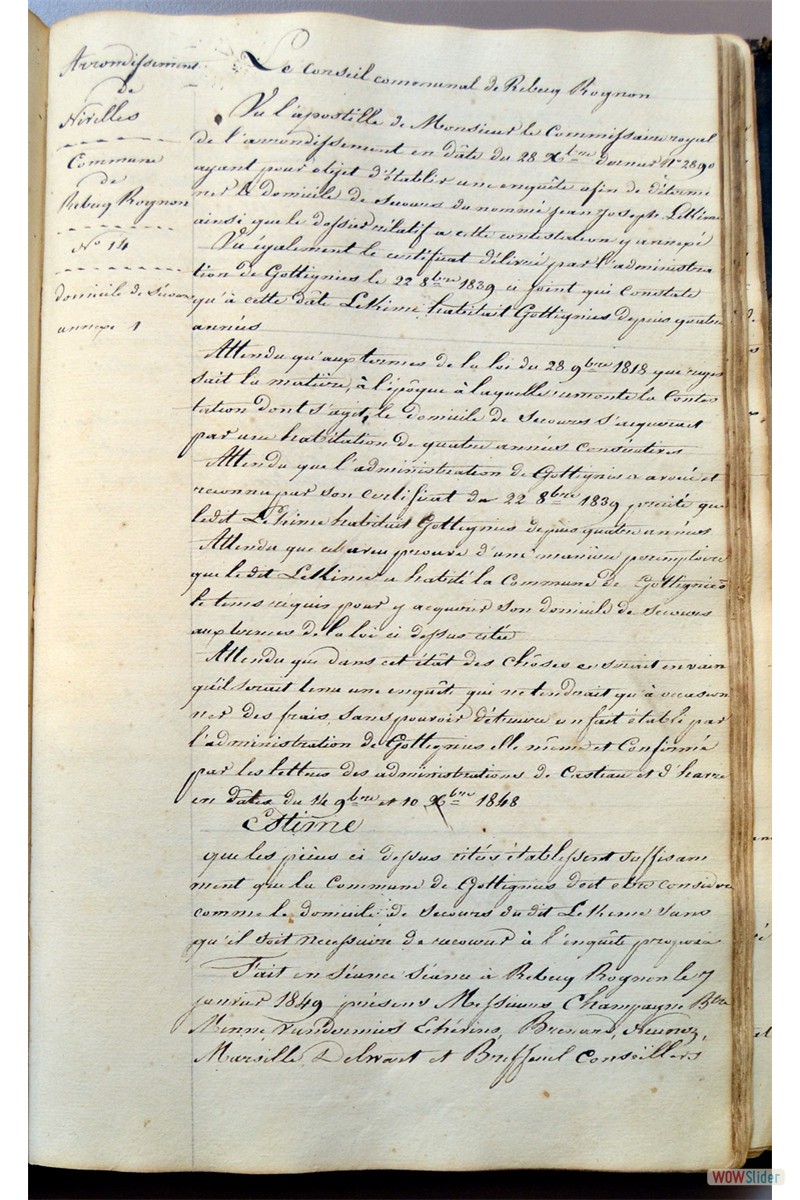 Arrondissement
de
Nivelles
Commune
de
Rebecq Rognon
N° 14
domicile de Secours
annexe 1
Le Conseil communal de Rebecq Rognon
Vu l'apostille de Monsieur le Commissaire royal
de l'arrondissement en dâte du 28 Xbre dernier N° 2890
ayant pour objet d'établir une enquête afin de détermi
ner le domicile de secours du nommé jean joseph LeKime
ainsi que le dossier rélatif a cette contestation y annexé
Vu également le certificat délivré par l'administra
tion de Gottignies le 22 8bre 1839 ci joint qui Constate
qu'à cette dâte LeKime habitait Gottignies depuis quatre
années
Attendu qu'aux termes de la loi du 28 9bre 1818 qui regis
sait la matière, à l'époque à laquelle remonte la Contes
tation dont s'agit, le domicile de Secours s'acquerait
par une habitation de quatre années Consécutives
Attendu que l'administration de Gottignies a avoué et
reconnu par son certificat du 22 8bre 1839 précité que
ledit LeKime habitait Gottignies depuis quatre années
Attendu que cet aveu prouve d'une manière peremptoire
que le dit LeKime a habité la Commune de Gottignies
le tems réquis pour y acquérir son domicile de secours
aux termes de la loi ci dessus citée
Attendu que dans cet état des chôses ce serait en vain
qu'il serait tenu une enquête qui ne tendrait qu'à occasion
ner des frais, sans pouvoir détruire un fait établé par
l'administration de Gottignies elle même et Confirmé
par les lettres des administrations de Casteau et d'havré
en dâtes du 14 9bre et 10 Xbre 1848
Estime
que les pièces ci dessus citées établissent suffisam
ment que la Commune de Gottignies doit etre considéré
comme le domicile de secours du dit LeKime sans
qu'il soit necessaire de recourir à l'enquête proposée
Fait en séance séance à Rebecq Rognon le 7
janvier 1849 présens Messieurs Champagne Btre
Minne, Vandermies Brenard,
Marsille, Delwart et Conseillers
WOWSlider